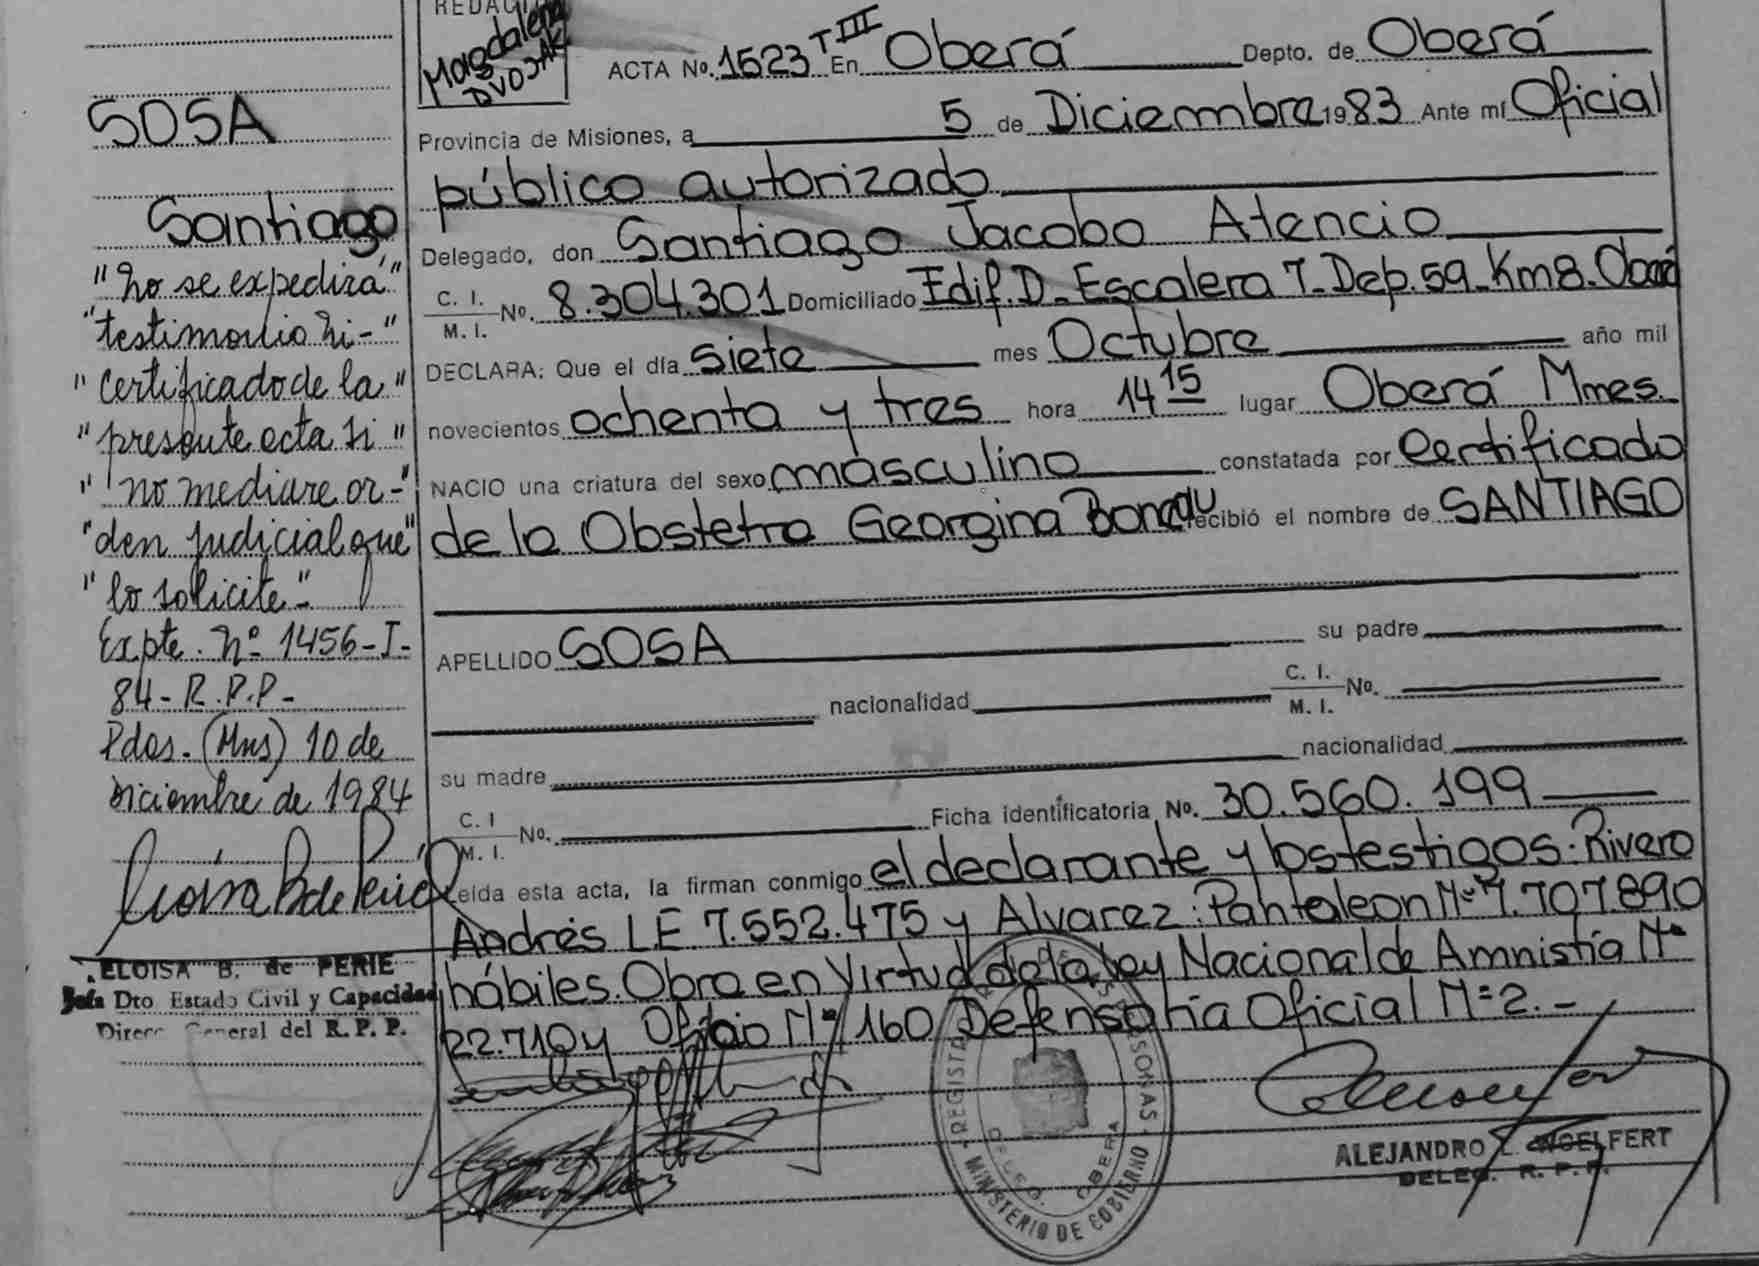 SOSA
Santiago
"No se expedirá"
"testimonio ni-"
"Certificado de la"
"presente acta si"
"no mediare or-"
"den judicial que"
"lo solicite-"
Expte. Nº 1456-I-
84-R.P.P-
Pdas.(Mns) 10 de
Diciembre de 1984
ELOISA B. de PERIE
Jefa Dto Estado Civil y Capacidad
Direcc General del R. P. P.
REDACT
Magdalena
DVOJAK
ACTA No. 1523 T III En Oberá Depto. de Oberá
Provincia de Misiones, a 5 de Diciembre 1983 Ante mí Oficial
público autorizado
Delegado, don Santiago Jacobo Atencio
C. I. M. I. No. 8.304.301 Domiciliado Edif. D- Escalera 7- Dep. 59- Km 8. Oberá
DECLARA: Que el día siete mes Octubre año mil
novecientos ochenta y tres hora 14 15 lugar Oberá Mnes.
NACIO una criatura del sexo masculino constatada por Certificado
de la Obstetra Georgina recibió el nombre de SANTIAGO
APELLIDO SOSA su padre
nacionalidad C. I. M. I. No.
su madre nacionalidad
C. I M. I. No. Ficha identificatoria No. 30.560.199
Leida esta acta, la firman conmigo el declarante y los testigos: Rivero
Andrés L.E 7.552.475 y Alvarez: Pantaleon Nº 7.707.890
hábiles. Obra en Virtud de la ley Nacional de Amnistía Nº
22.710 y Oficio Nº 160 Defensoria Oficial Nº 2.-
REGISTRO PERSONAS
MINISTERIO DE GOBIERNO
DELEG. OBERA
ALEJANDRO L. WOELFERT
DELEG. R. P. P.